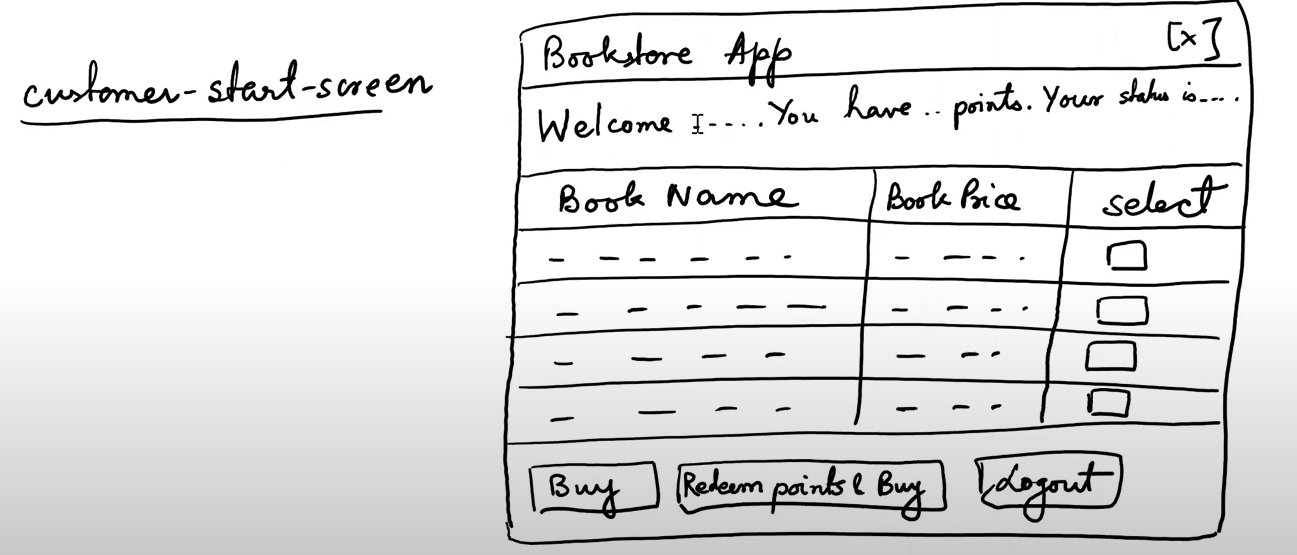 customer-start-screen
Bookstore App [x]
Welcome ----. You have .. points. Your status is---.
Book Name Book Price select
Buy Redeem points & Buy Logout